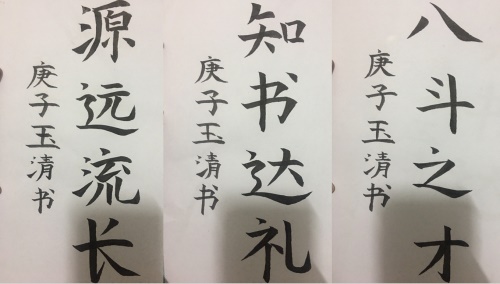 源远流长
庚子玉清书
知书达礼
庚子玉清书
八斗之才
庚子玉清书